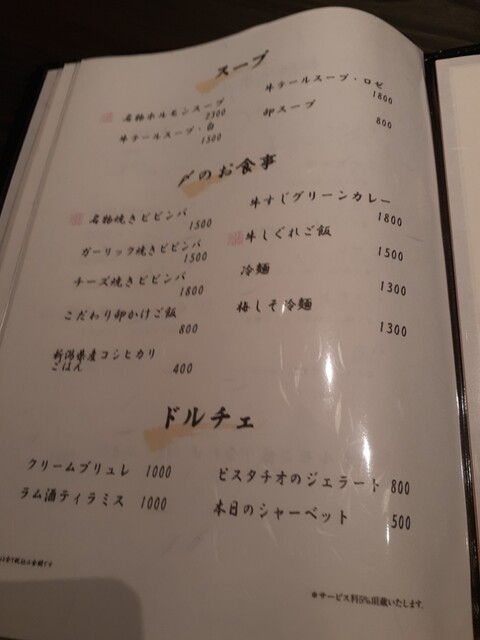 スープ
名物ホルモンスープ
2300
牛テールスープ・白
1500
牛テールスープ・ロゼ
1800
卵スープ
800
〆のお食事
名物焼きビビンバ
1500
ガーリック焼きビビンバ
1500
チーズ焼きビビンバ
1800
こだわり卵かけご飯
800
新潟県産コシヒカリ
ごはん 400
牛すじグリーンカレー
1800
牛しぐれご飯
1500
冷麺
1300
梅しそ冷麺
1300
ドルチェ
クリームブリュレ 1000
ラム酒ティラミス 1000
ピスタチオのジェラート 800
本日のシャーベット 500
※サービス料5%頂戴いたします。